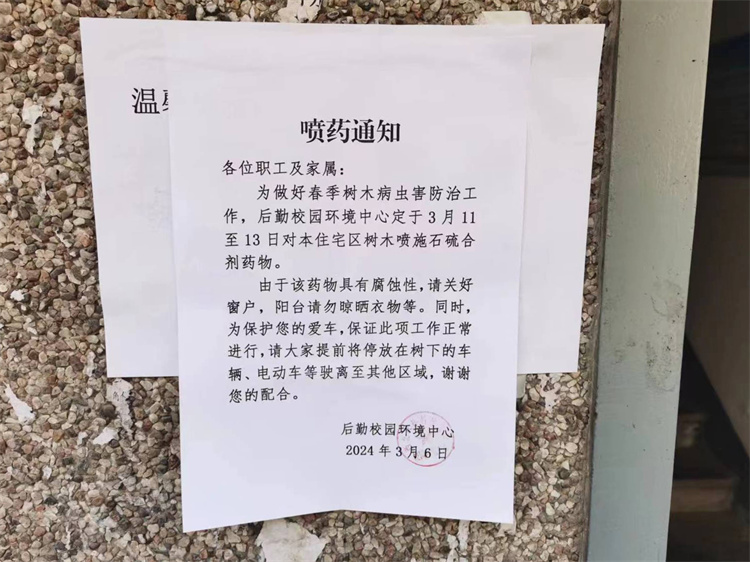 温
喷药通知
各位职工及家属:
为做好春季树木病虫害防治工
作,后勤校园环境中心定于3月11
至13日对本住宅区树木喷施石硫合
剂药物。
由于该药物具有腐蚀性,请关好
窗户,阳台请勿晾晒衣物等。同时,
为保护您的爱车,保证此项工作正常
进行,请大家提前将停放在树下的车
辆、电动车等驶离至其他区域,谢谢
您的配合。
后勤校园环境中心
2024年3月6日